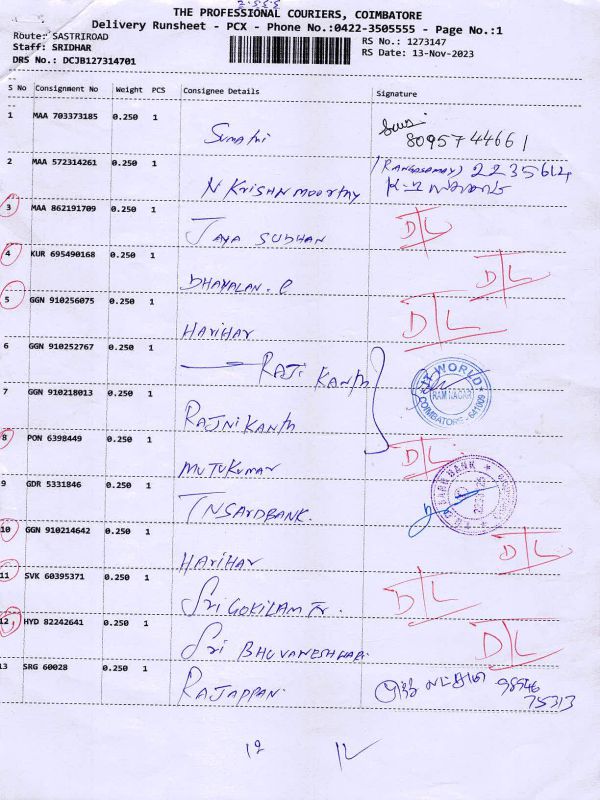 THE PROFESSIONAL COURIERS, COIMBATORE
Delivery Runsheet - PCX - Phone No.:0422-3505555 - Page No.:1
Route: SASTRIROAD
Staff: SRIDHAR
DRS No.: DCJB127314701
RS No.: 1273147
RS Date: 13-Nov-2023
S No Consignment No Weight PCS Consignee Details Signature
1 MAA 703373185 0.250 1 Sumathi 8095744661
2 MAA 572314261 0.250 1 N Krishnamoorthy (Rangasamay) 2235614
3 MAA 862191709 0.250 1 JAYA SUDHAN D/L
4 KUR 695490168 0.250 1 DHAYALAN. P D/L
5 GGN 910256075 0.250 1 HARIHAR D/L
6 GGN 910252767 0.250 1 RAJI KANTH
IT WORLD RAM NAGAR COIMBATORE - 641009
7 GGN 910218013 0.250 1 RAJNIKANTH
8 PON 6398449 0.250 1 MUTUKUMAR D/L
9 GDR 5331846 0.250 1 TNSARDBANK. BANK
10 GGN 910214642 0.250 1 HARIHAR D/L
11 SVK 60395371 0.250 1 Sri GOKILAM Tr. D/L
12 HYD 82242641 0.250 1 Sri BHUVANESHWAR. D/L
13 SRG 60028 0.250 1 RAJAPPAN. 98946
75313